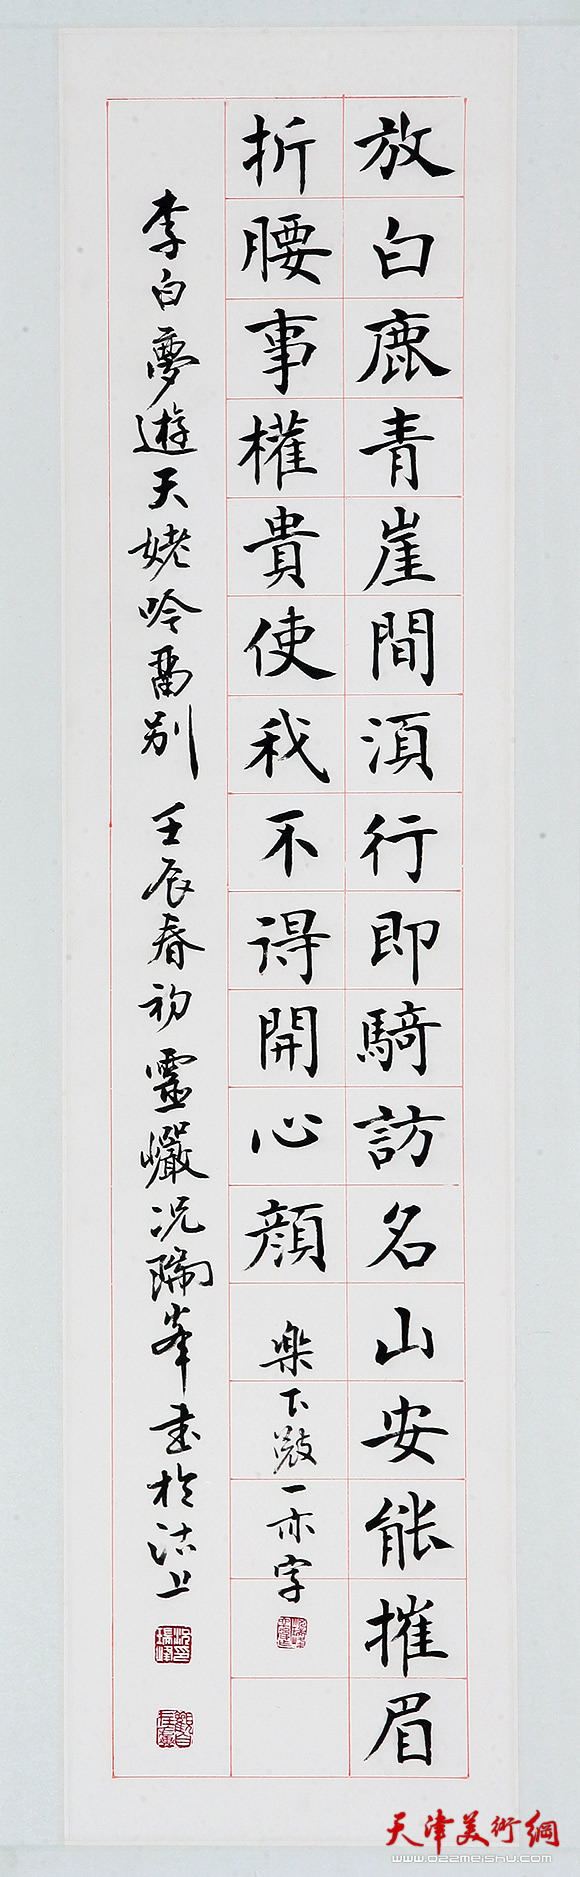 放白鹿青崖間湏行即騎訪名山安能摧眉
折腰事權貴使我不得開心顔
樂下一亦字
李白夢遊天姥吟畱別 壬辰春初靈巗况瑞峯書於沽上
天津美術網
www.022meishu.com